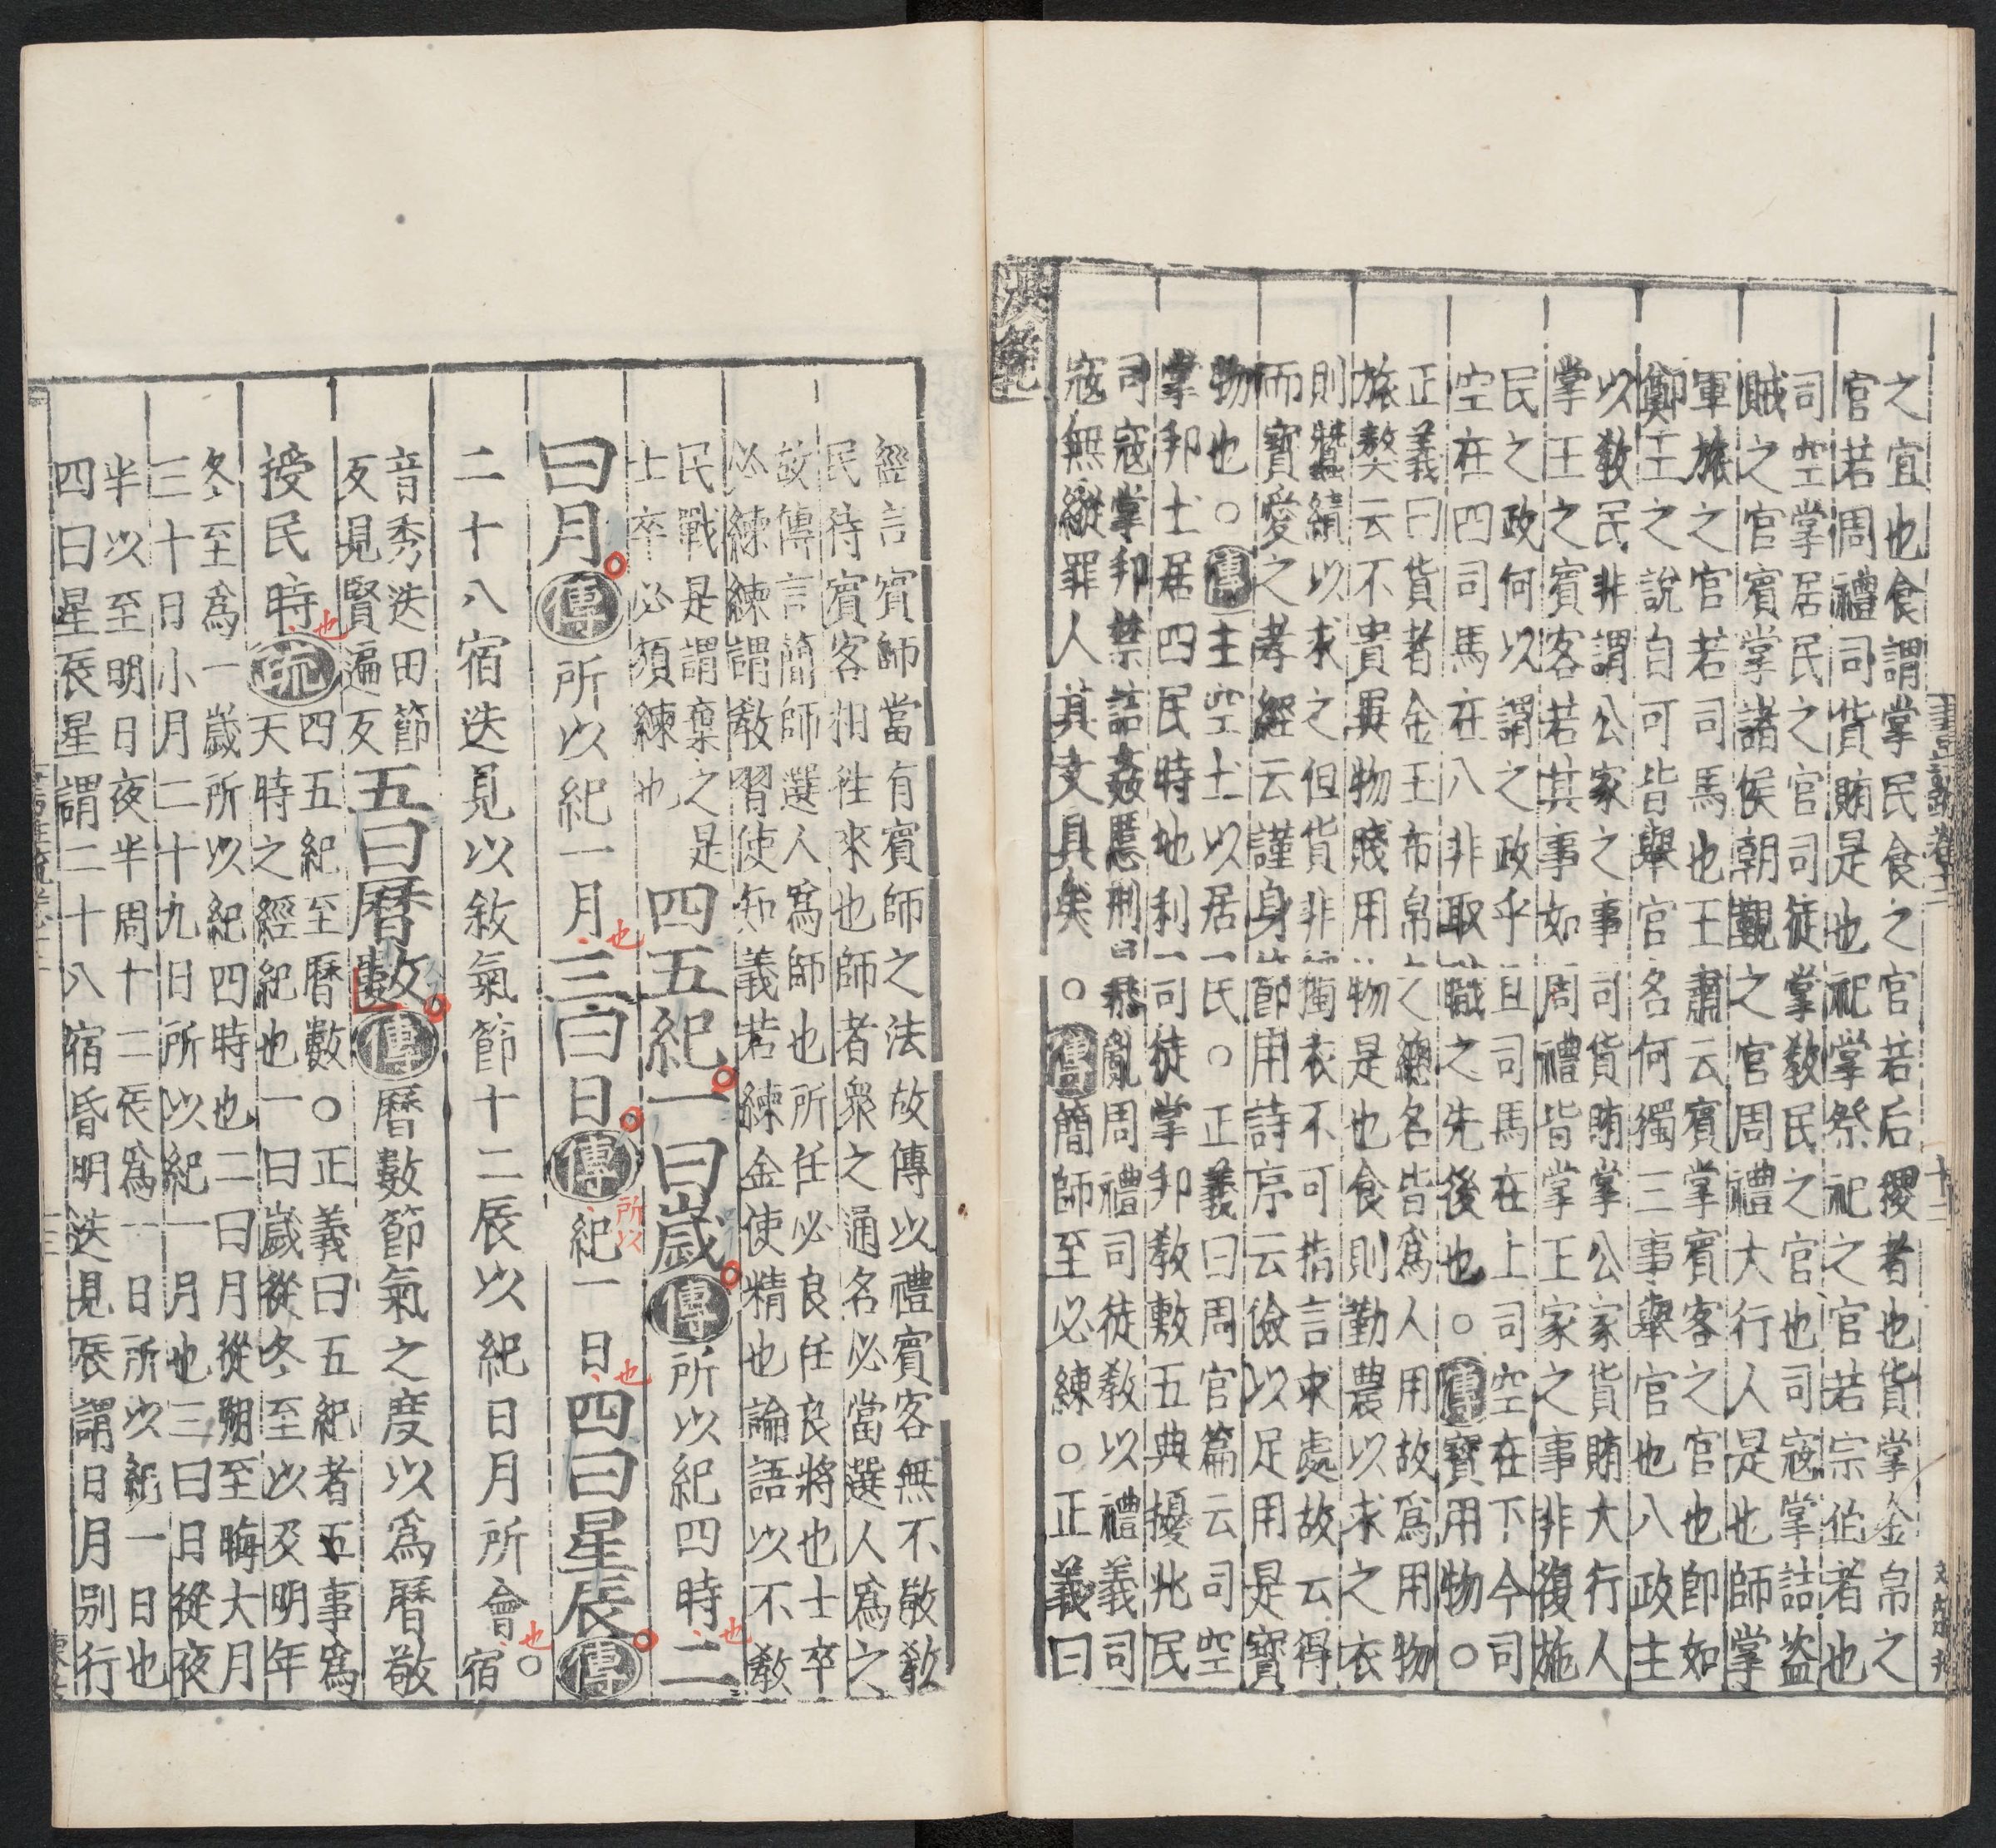 之宜也食謂掌民食之官若后稷者也貨掌金帛之
官若周禮司貨賄是也祀掌祭祀之官若宗伯者也
司空掌居民之官司徒掌教民之官也司寇掌詰盜
賊之官賓掌諸侯朝覲之官周禮大行人是也師掌
軍旅之官若司馬也王肅云賓掌賓客之官也即如
鄭王之說自可皆舉官名何獨三事舉官也八政主
以教民非謂公家之事司貨賄掌公家貨賄大行人
掌王之賓客若其事如周禮皆掌王家之事非復施
民之政何以謂之政乎且司馬在上司空在下今司
空在四司馬在八非取職之先後也○傳寶用物○
正義曰貨者金玉布帛之總名皆爲人用故爲用物
旅獒云不貴異物賤用物是也食則勤農以求之衣
則蠶績以求之但貨非獨衣不可指言求處故云得
而寶愛之孝經云謹身節用詩序云儉以足用是寶
物也○傳主空土以居民○正義曰周官篇云司空
掌邦土居四民時地利司徒掌邦教敷五典擾兆民
司寇掌邦禁詰姦慝刑暴亂周禮司徒教以禮義司
寇無縱罪人其文具矣○傳簡師至必練○正義曰
洪範
經言賓師當有賓師之法故傳以禮賓客無不敬教
民待賓客相往來也師者衆之通名必當選人爲之
故傳言簡師選人爲師也所任必良任良將也士卒
必練練謂教習使知義若練金使精也論語以不教
民戰是謂棄之是
士卒必須練也
四五紀一曰歲傳所以紀四時也二
曰月傳所以紀一月也三曰日傳所以紀一日也四曰星辰傳
二十八宿迭見以敘氣節十二辰以紀日月所會也○宿
音秀迭田節
反見賢遍反
五曰曆數傳曆數節氣之度以爲曆敬
授民時也疏
四五紀至曆數○正義曰五紀者五事爲
天時之經紀也一曰歲從冬至以及明年
冬至爲一歲所以紀四時也二曰月從朔至晦大月
三十日小月二十九日所以紀一月也三曰日從夜
半以至明日夜半周十二辰爲一日所以紀一日也
四曰星辰星謂二十八宿昏明迭見辰謂日月別行